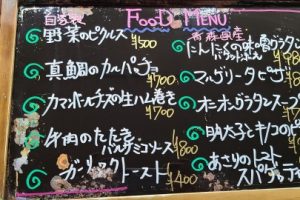 FOOD MENU
自家製
野菜のピクルス
¥500
真鯛のカルパッチョ
¥700
カマンベールチーズの生ハム巻き
¥700
牛肉のたたき
バルサミコソース
¥800
ガーリックトースト
¥400
青森県産
にんにくの味噌グラタン
バケット
マルゲリータピザ
オニオングラタンスープ
明太子とキノコの
あさりのトマト
スパゲッティ